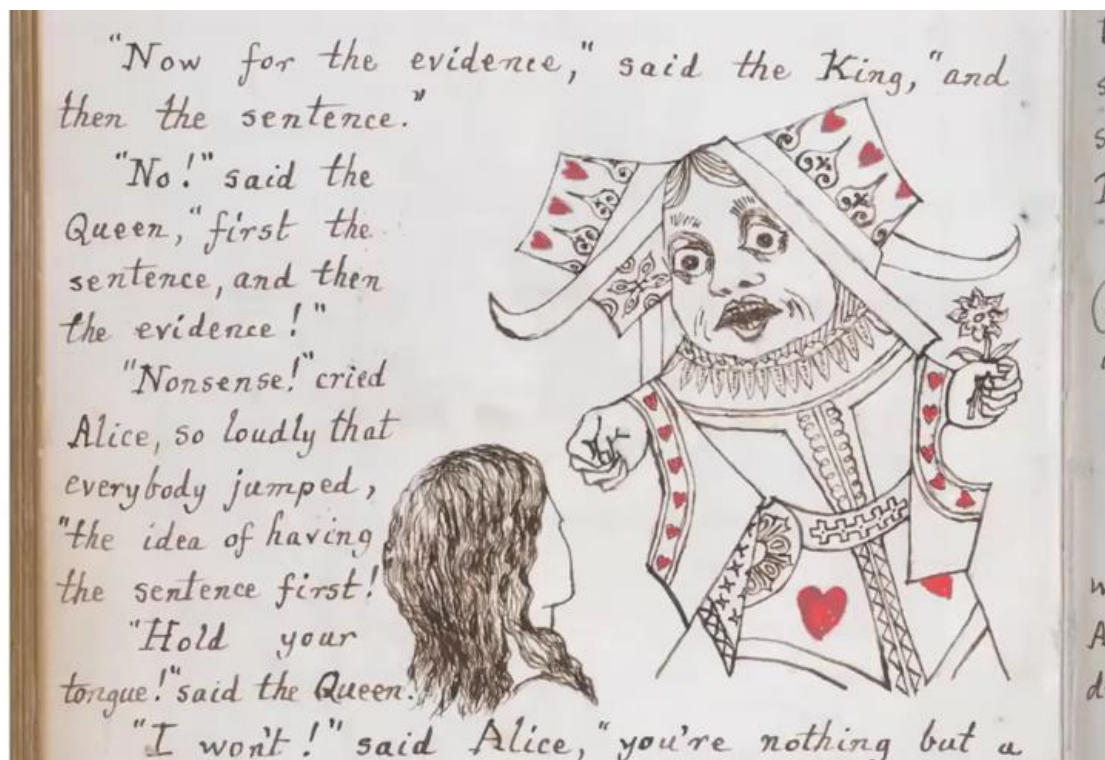 "Now for the evidence," said the King, "and
then the sentence."
"No!" said the
Queen, "first the
sentence, and then
the evidence!"
"Nonsense!" cried
Alice, so loudly that
everybody jumped,
"the idea of having
the sentence first!
"Hold your
tongue!" said the Queen.
"I won't!" said Alice, "you're nothing but a